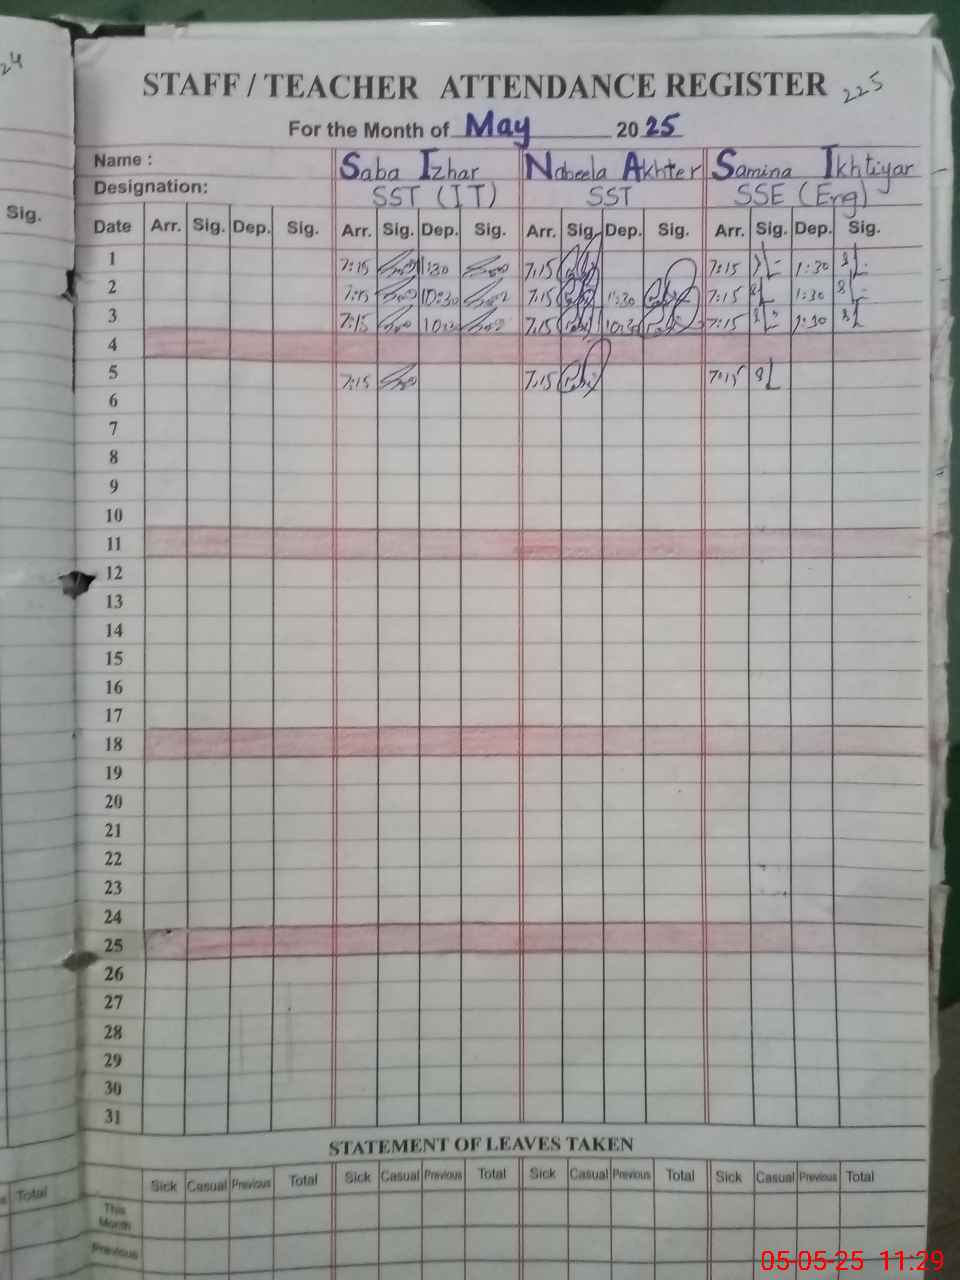 24
STAFF / TEACHER ATTENDANCE REGISTER 225
For the Month of May 2025
Name : Saba Izhar Nabeela Akhter Samina Ikhtiyar
Designation: SST (IT) SST SSE (Eng)
Sig.
Date Arr. Sig. Dep. Sig. Arr. Sig. Dep. Sig. Arr. Sig. Dep. Sig. Arr. Sig. Dep. Sig.
1 7:15 1:30 7:15 7:15 1:30
2 7:15 10:30 7:15 1:30 7:15 1:30
3 7:15 10:3 7:15 10:3 7:15 1:30
4
5 7:15 7:15 7:15
6
7
8
9
10
11
12
13
14
15
16
17
18
19
20
21
22
23
24
25
26
27
28
29
30
31
STATEMENT OF LEAVES TAKEN
Total Sick Casual Previous Total Sick Casual Previous Total Sick Casual Previous Total Sick Casual Previous Total
This
Month
Previous
05-05-25 11:29